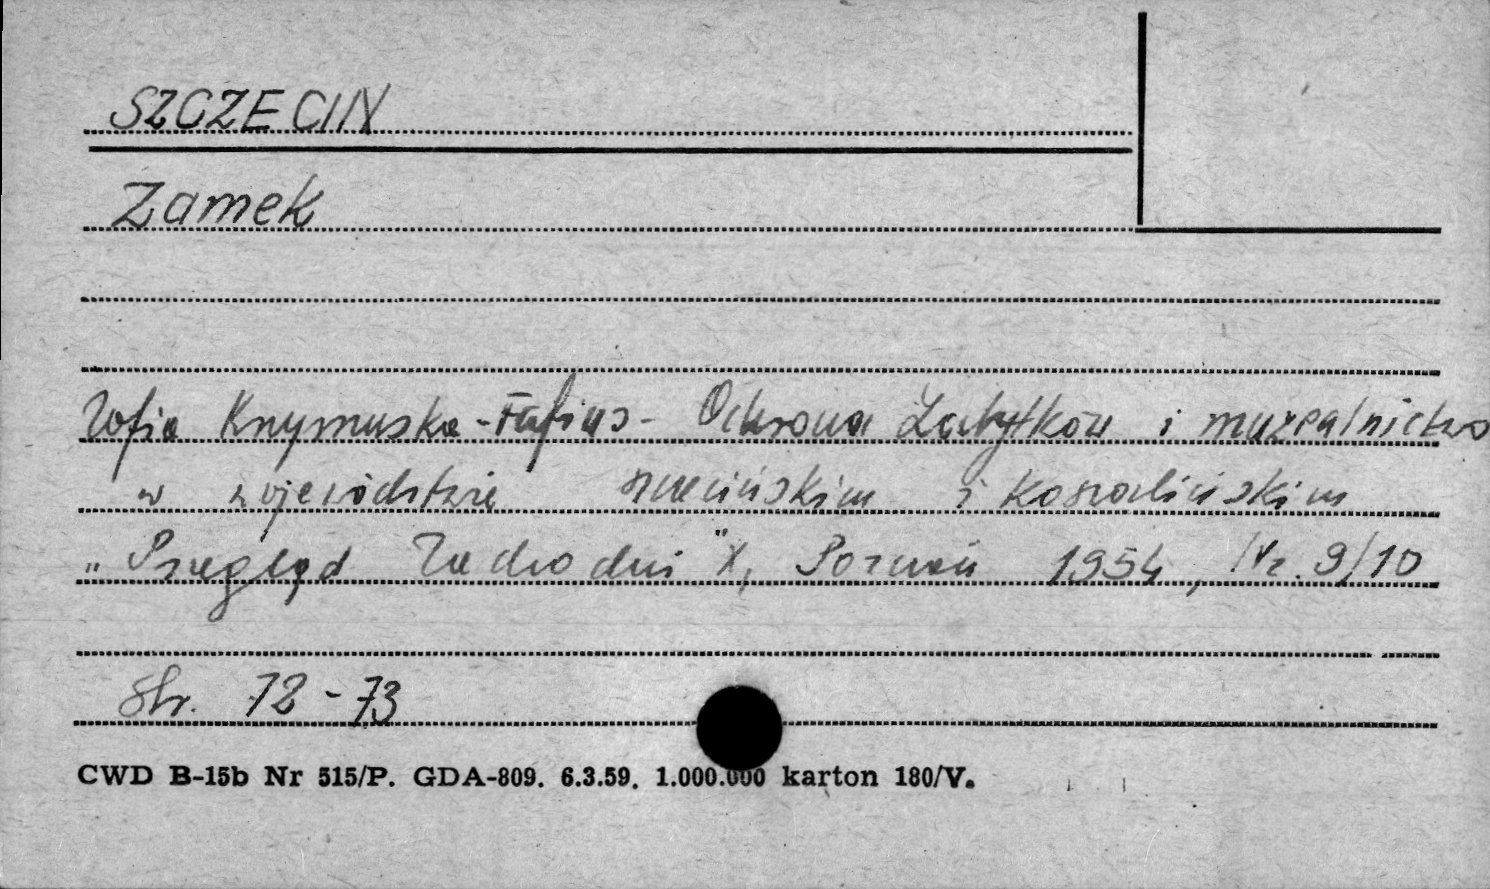 SZCZECIN
Zamek
Zofia Krzymuska-Fafius - Ochrona Zabytków i muzealnictwo
w województwie szczecińskim i koszalińskim
„Przegląd Zachodni" X, Poznań 1954, Nr. 9/10
str. 72-73
CWD B-15b Nr 515/P. GDA-809. 6.3.59. 1.000.000 karton 180/V.